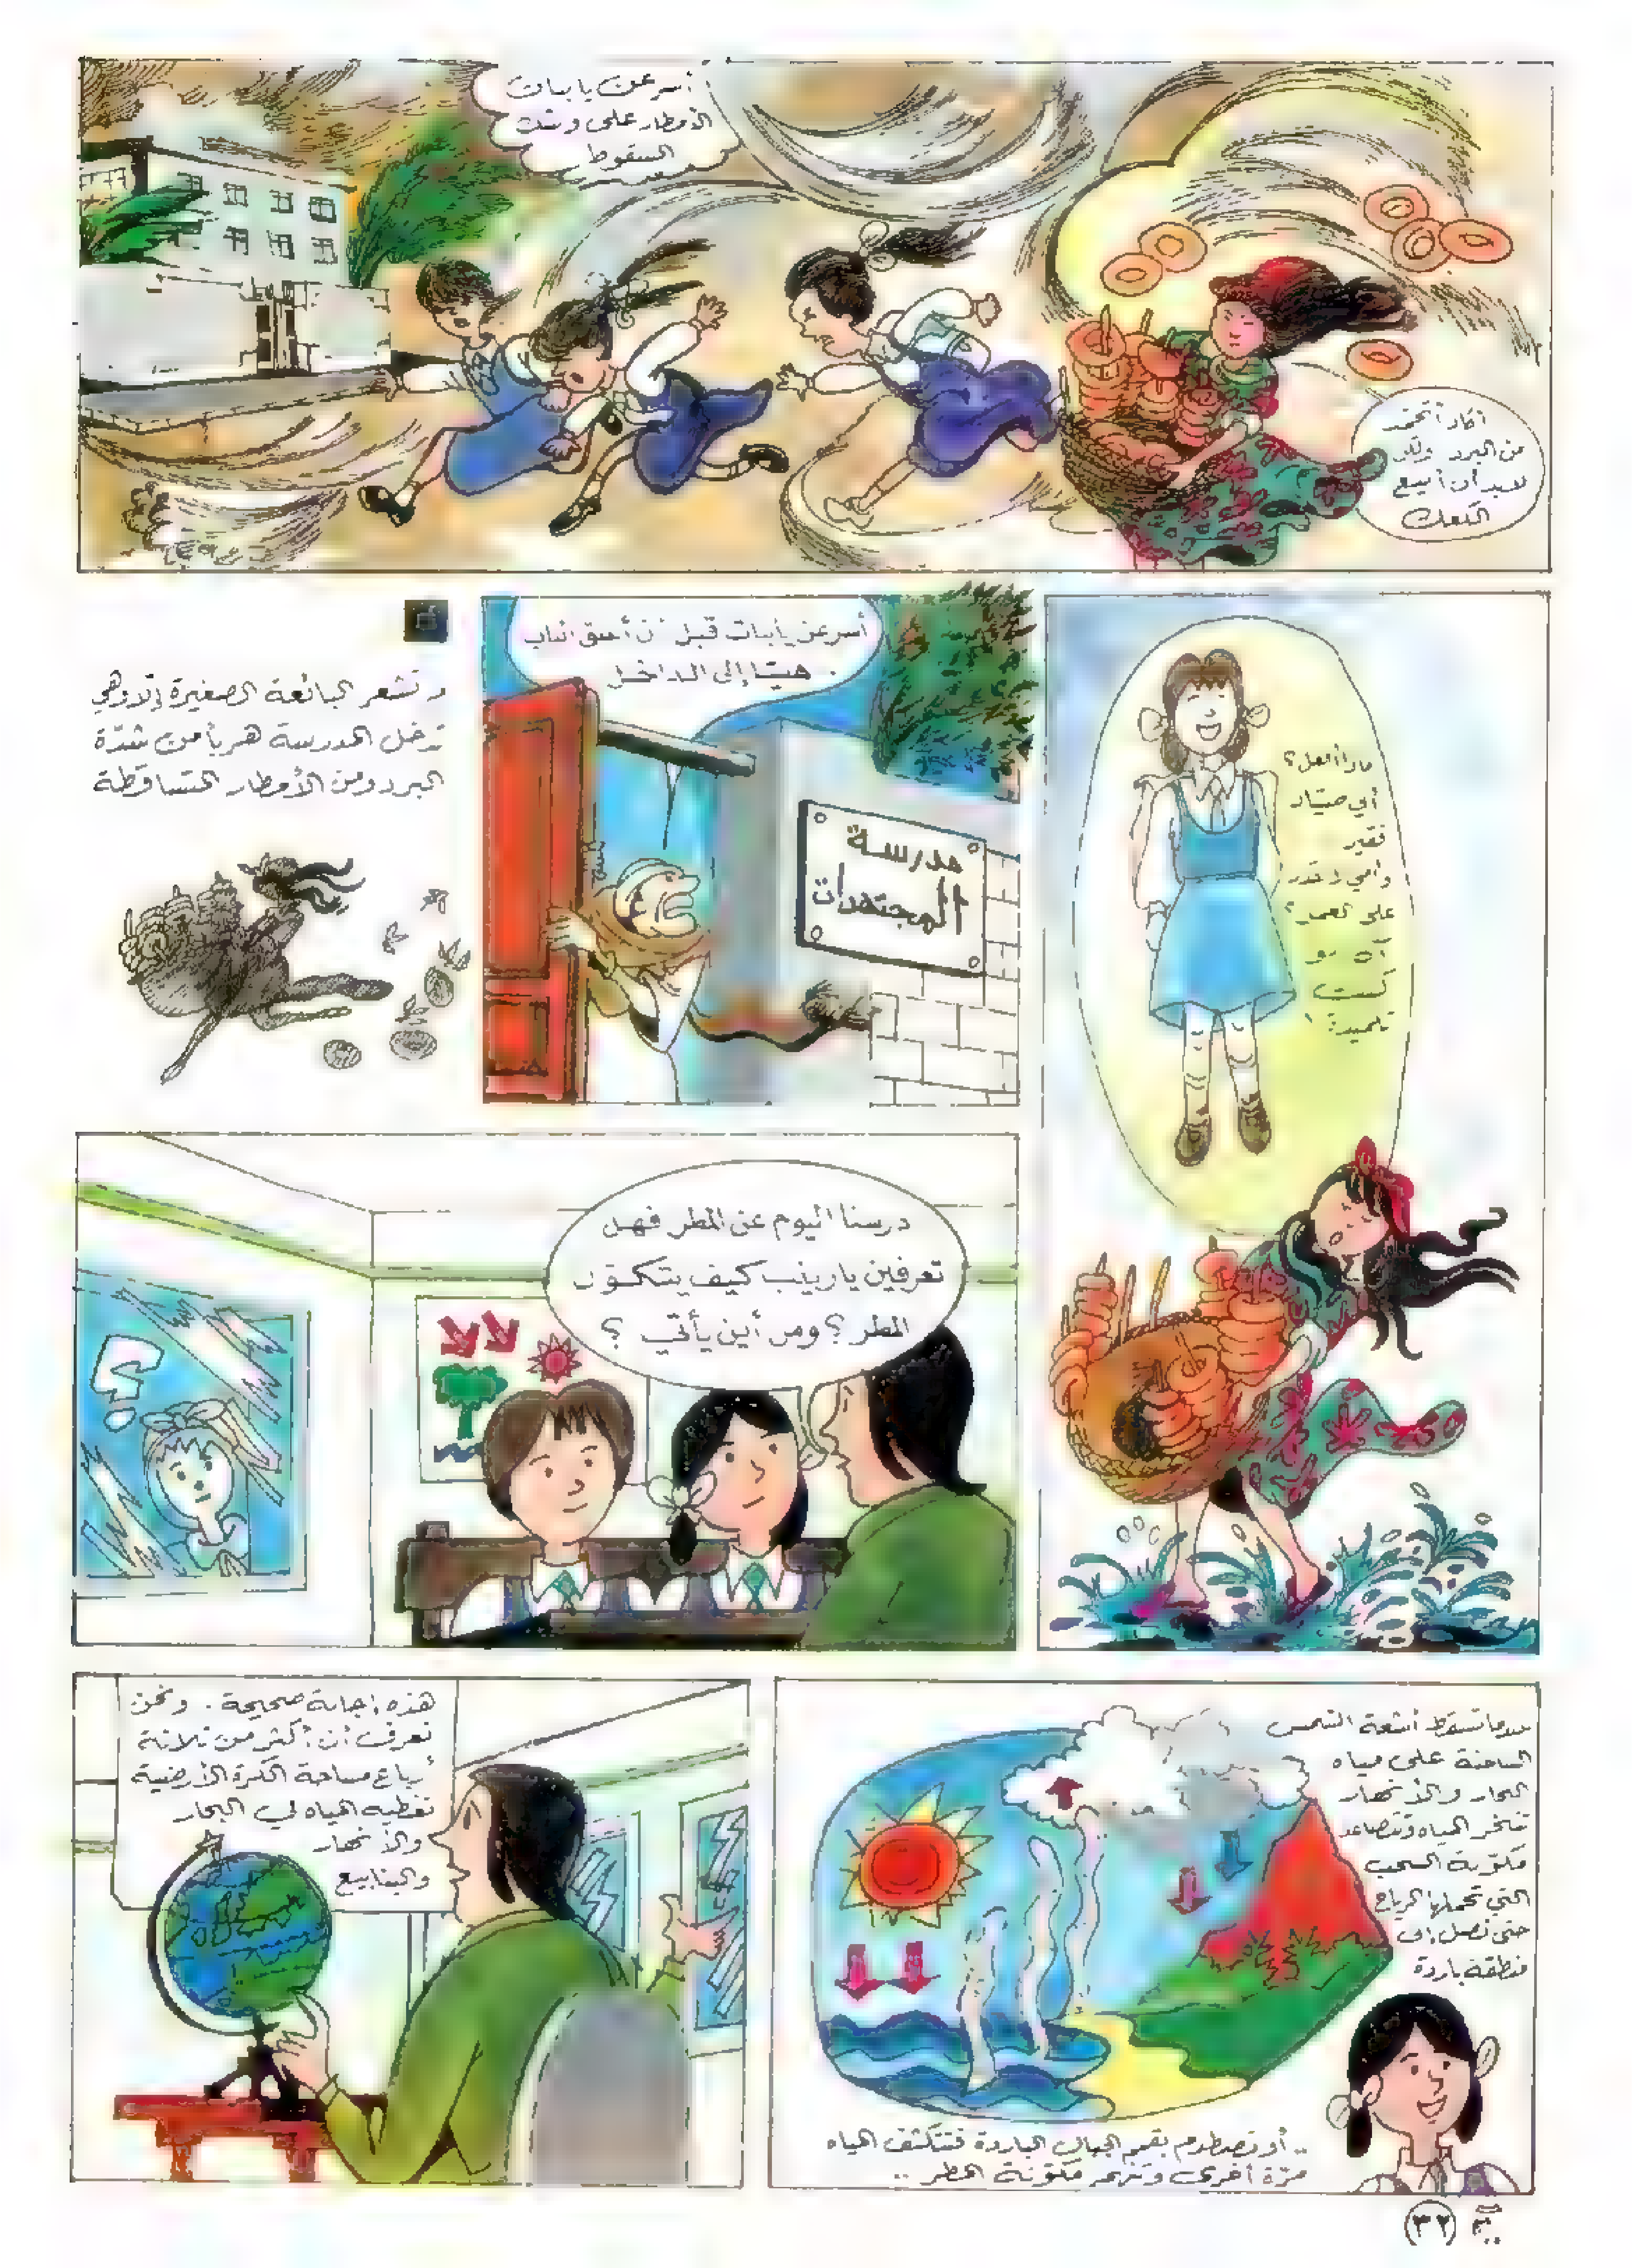 أسرعن يا بنات
الأمطار على وشك
السقوط
أكاد أتجمد
من البرد ولكن
لابد أن أبيع
الكعك
ماذا أفعل؟
أبي صياد
فقير
وأمي لا تقدر
على العمل؟
آه لو
كنت
تلميذة!
أسرعن يا بنات قبل أن أغلق الباب
هيا إلى الداخل.
مدرسة
المجتهدات
ولا تشعر البائعة الصغيرة إلا وهي
تدخل المدرسة هرباً من شدّة
البرد ومن الأمطار المتساقطة
درسنا اليوم عن المطر فهل
تعرفين يا زينب كيف يتكوّن
المطر؟ ومن أين يأتي؟
؟
عندما تسقط أشعة الشمس
الساخنة على مياه
البحار والأنهار
تتبخر المياه وتتصاعد
مكوّنة السحب
التي تحملها الرياح
حتى تصل إلى
منطقة باردة
.. أو تصطدم بقمم الجبال الباردة فتتكثف المياه
مرّة أخرى وتنهمر مكوّنة المطر ..
هذه إجابة صحيحة. ونحن
نعرف أن أكثر من ثلاثة
أرباع مساحة الكرة الأرضية
تغطيه المياه في البحار
والأنهار
والينابيع
٣٢